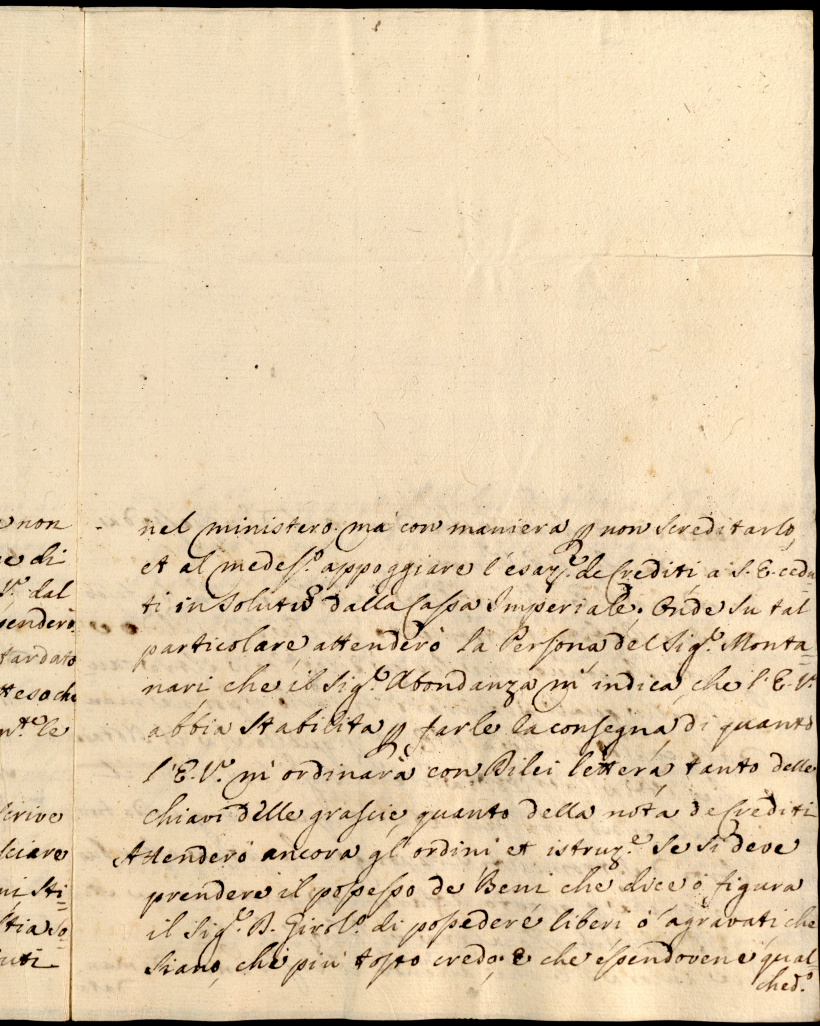 e non
e di
V.ª dal
penderò
tardato
tteso che
n.te le
scrive
sciare
ni sti=
stia so=
uti
nel ministero. ma con maniera p non screditarlo,
et al medes.º appoggiare l'esaz.e de Crediti a S. E. cedu=
ti in Solutũ dalla Cassa Imperiale. Onde su tal
particolare attenderò la Persona del Sig.r Monta=
nari che il Sig.r Abondanza m'indica, che l'E. V.ª
abbia stabilita p farle la consegna di quanto
l'E. V.ª m'ordinarà con di lei lettera tanto delle
chiavi delle grascie, quanto della nota de Crediti
Attenderò ancora gl'ordini et istruz.e se si deve
prendere il possesso de Beni che dice ò figura
il Sig.r B. Girol.º di possedere liberi ò agravati che
siano, che più tosto credo: e che essendovene qual=
ched.º